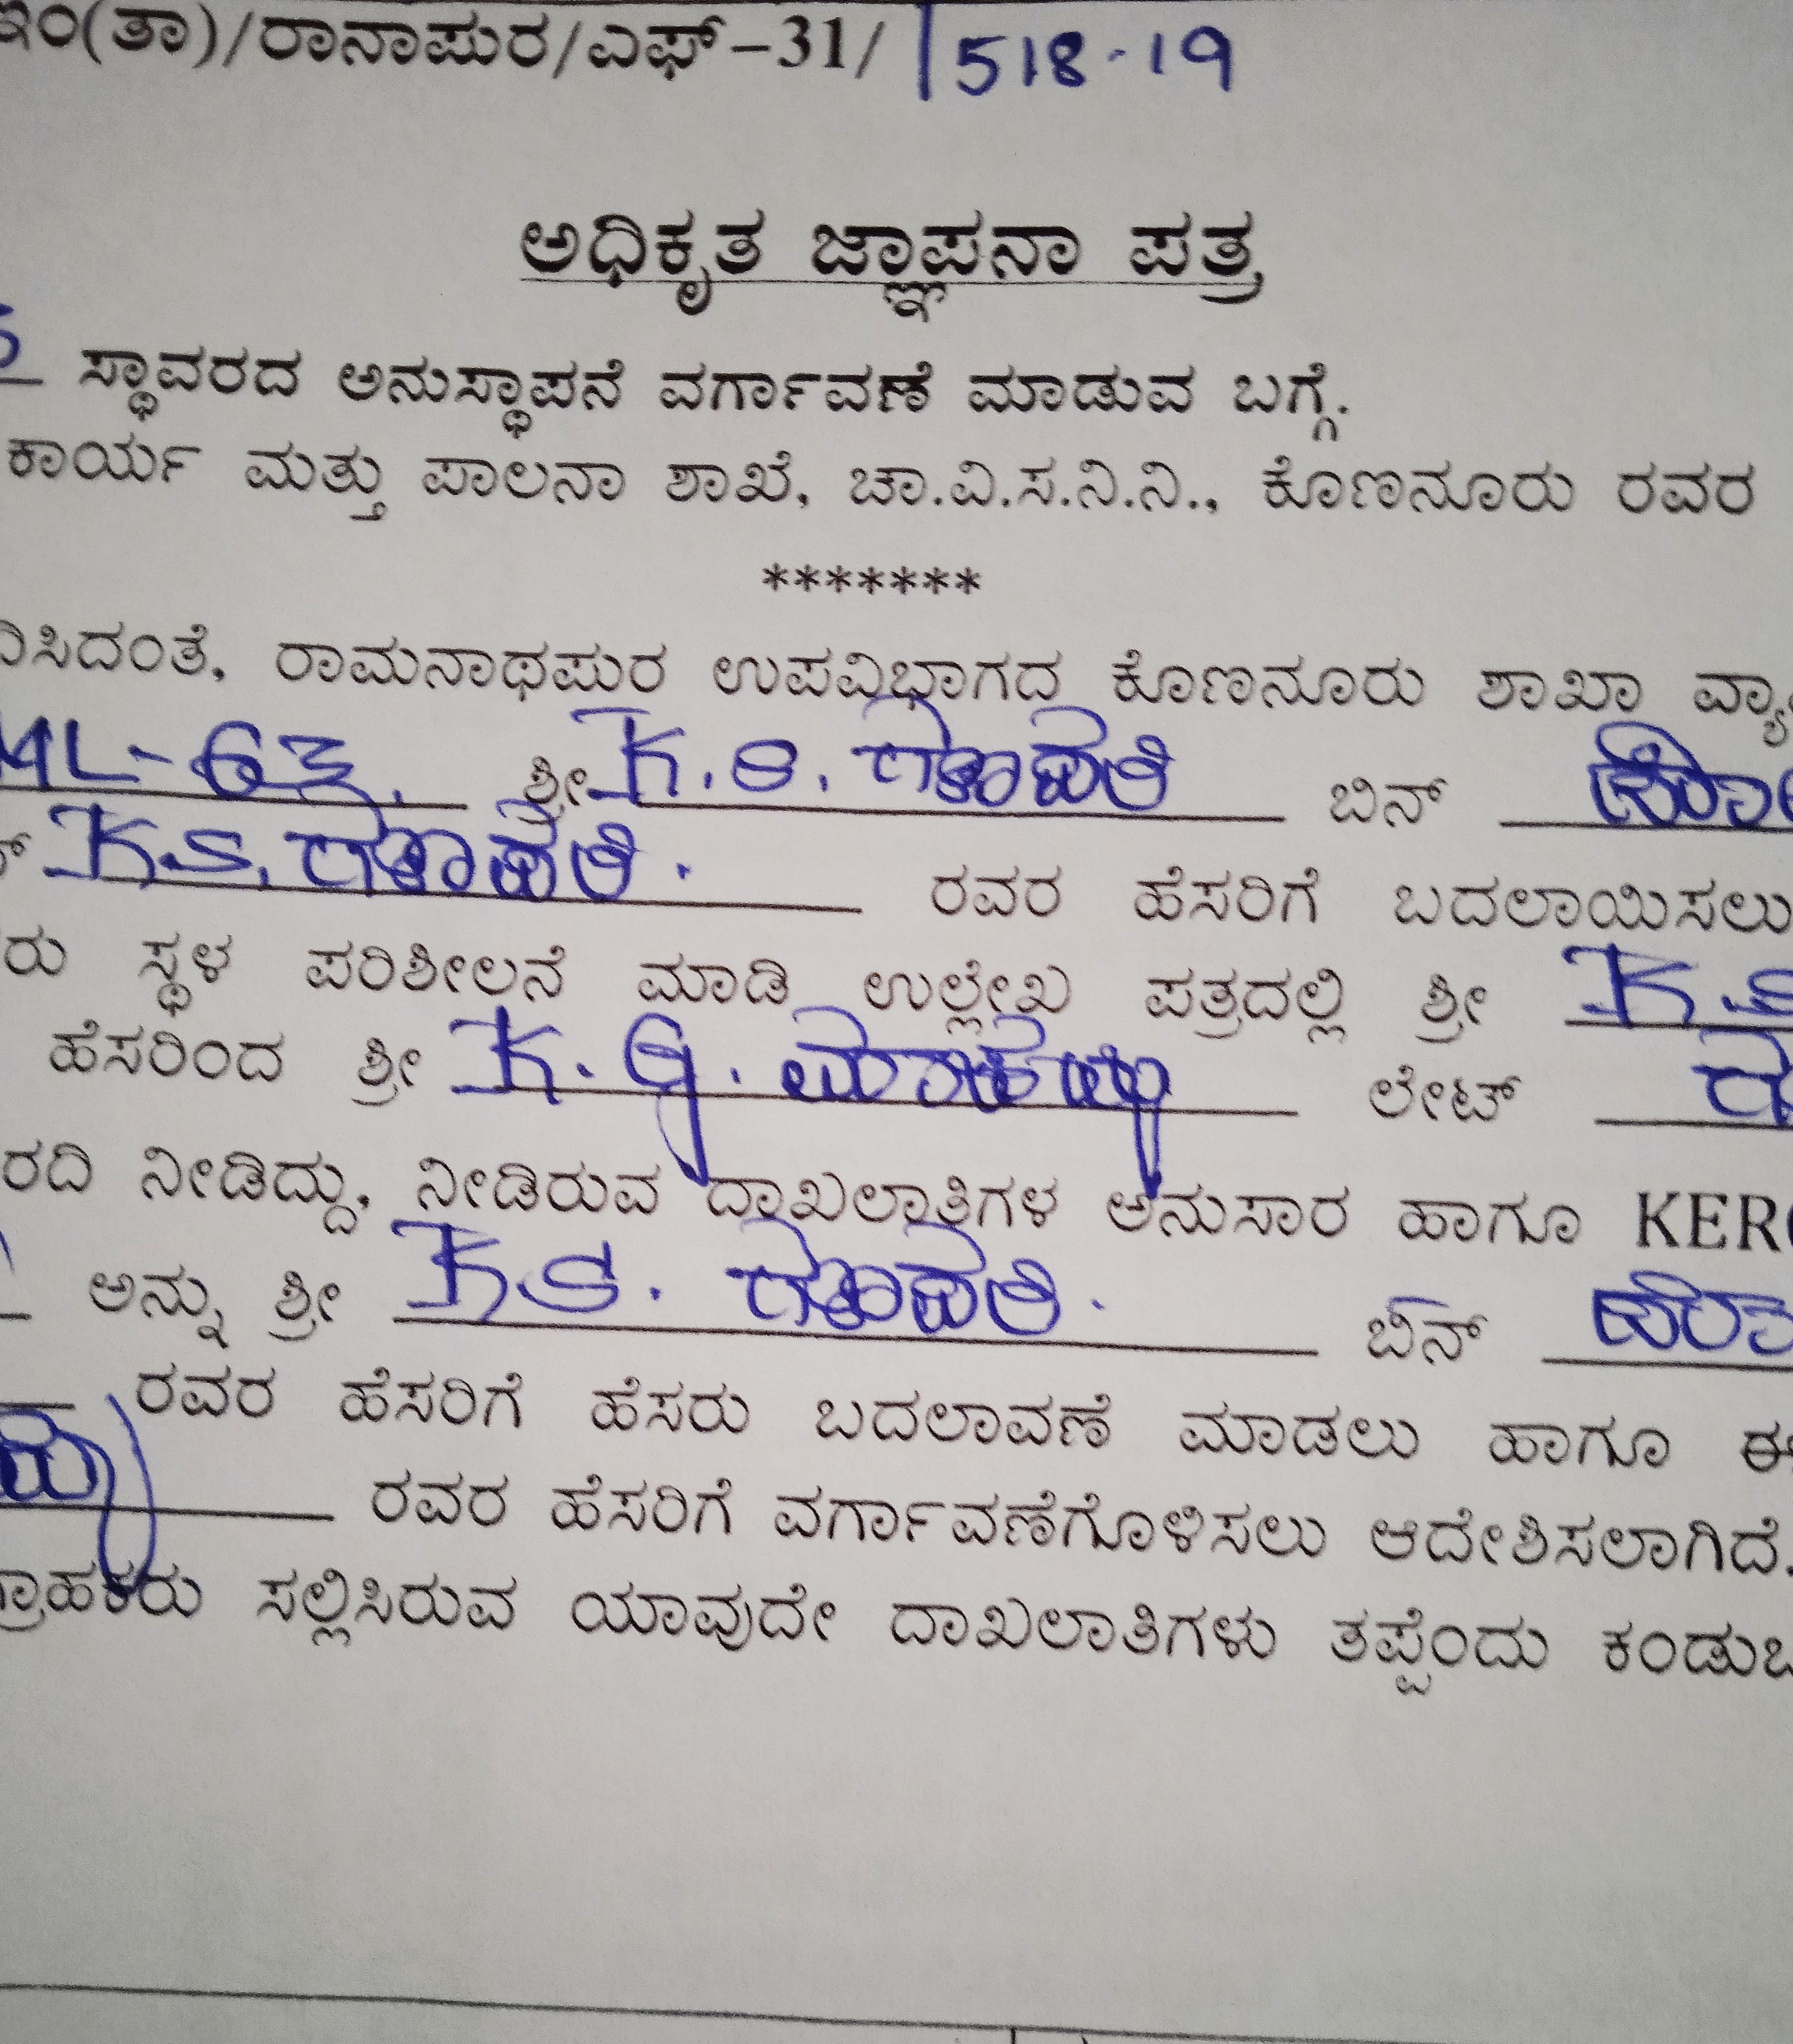 ಇಂ(ತಾ)/ರಾನಾಪುರ/ಎಫ್-31/ 518-19
ಅಧಿಕೃತ ಜ್ಞಾಪನಾ ಪತ್ರ
ಸ್ಥಾವರದ ಅನುಸ್ಥಾಪನೆ ವರ್ಗಾವಣೆ ಮಾಡುವ ಬಗ್ಗೆ.
ಕಾರ್ಯ ಮತ್ತು ಪಾಲನಾ ಶಾಖೆ, ಚಾ.ವಿ.ಸ.ನಿ.ನಿ., ಕೊಣನೂರು ರವರ
*******
ರಾಮನಾಥಪುರ ಉಪವಿಭಾಗದ ಕೊಣನೂರು ಶಾಖಾ
ML-63. ಶ್ರೀ K.S. ಗಣಪತಿ ಬಿನ್
K.S. ಗಣಪತಿ. ರವರ ಹೆಸರಿಗೆ ಬದಲಾಯಿಸಲು
ಸ್ಥಳ ಪರಿಶೀಲನೆ ಮಾಡಿ ಉಲ್ಲೇಖ ಪತ್ರದಲ್ಲಿ ಶ್ರೀ K.S
ಹೆಸರಿಂದ ಶ್ರೀ K.G. ಲೇಟ್
ನೀಡಿದ್ದು, ನೀಡಿರುವ ದಾಖಲಾತಿಗಳ ಅನುಸಾರ ಹಾಗೂ KER
ಅನ್ನು ಶ್ರೀ K.S. ಗಣಪತಿ. ಬಿನ್
ರವರ ಹೆಸರಿಗೆ ಹೆಸರು ಬದಲಾವಣೆ ಮಾಡಲು ಹಾಗೂ ಈ
ರವರ ಹೆಸರಿಗೆ ವರ್ಗಾವಣೆಗೊಳಿಸಲು ಆದೇಶಿಸಲಾಗಿದೆ.
ಗ್ರಾಹಕರು ಸಲ್ಲಿಸಿರುವ ಯಾವುದೇ ದಾಖಲಾತಿಗಳು ತಪ್ಪೆಂದು